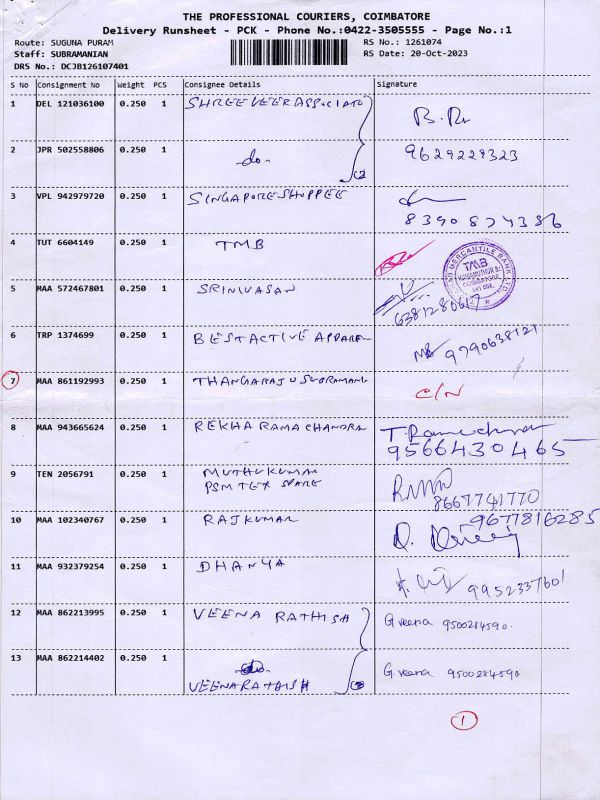 THE PROFESSIONAL COURIERS, COIMBATORE
Delivery Runsheet - PCK - Phone No.:0422-3505555 - Page No.:1
Route: SUGUNA PURAM RS No.: 1261074
Staff: SUBRAMANIAN RS Date: 20-Oct-2023
DRS No.: DCJB126107401
S No Consignment No Weight PCS Consignee Details Signature
1 DEL 121036100 0.250 1 SHREE VEER ASSOCIATE
2 JPR 502558806 0.250 1 do. 9629229323
3 VPL 942979720 0.250 1 SINGAPORE SHOPPEE
8390874386
4 TUT 6604149 0.250 1 TMB
MERCANTILE BANK LTD.
TMB
COIMBATORE
5 MAA 572467801 0.250 1 SRINIVASAN
6381280617
6 TRP 1374699 0.250 1 BEST ACTIVE APPAREL 9790638121
7 MAA 861192993 0.250 1 THANGARAJ U SUBRAMANI C/N
8 MAA 943665624 0.250 1 REKHA RAMA CHANDRA
9566430465
9 TEN 2056791 0.250 1 MUTHUKUMAR
PSM TEX SPARE
8667741770
10 MAA 102340767 0.250 1 RAJKUMAR 9677816285
11 MAA 932379254 0.250 1 DHANYA 9952337601
12 MAA 862213995 0.250 1 VEENA RATHISH G veena 9500284590.
13 MAA 862214402 0.250 1 do. G veena 9500284590
VEENA RATHISH
1